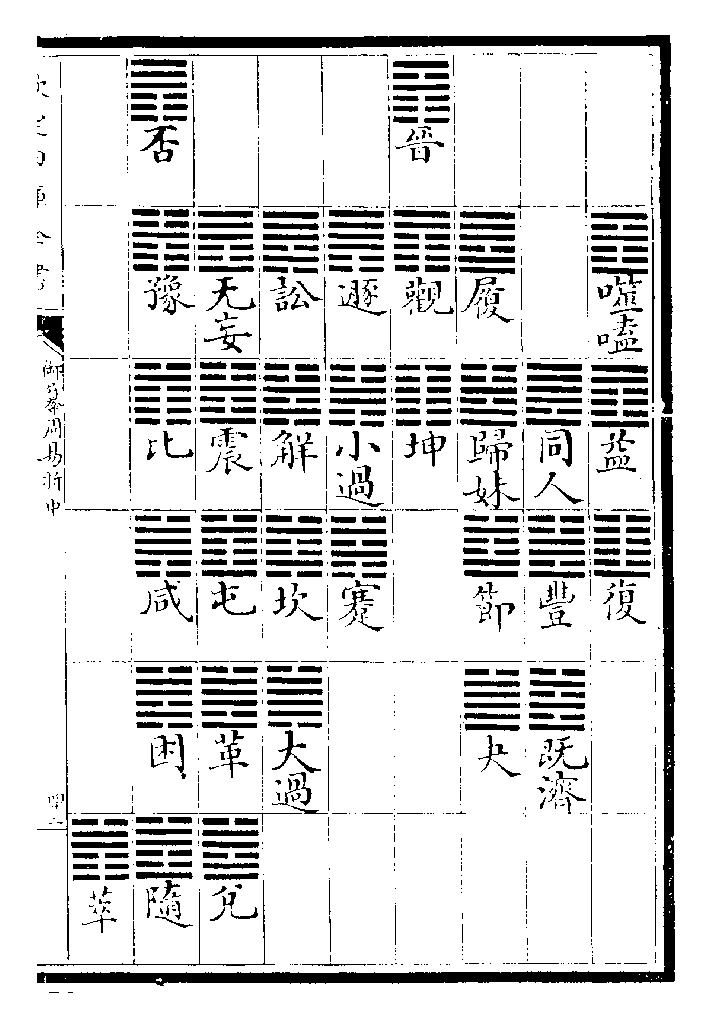 噬嗑 益 復
同人 豐 既濟
履 歸妹 節 夬
晉 觀 坤
遯 小過 蹇
訟 解 坎 大過
无妄 震 屯 革 兌
否 豫 比 咸 困 隨
萃
欽定四庫全書
御纂周易折中